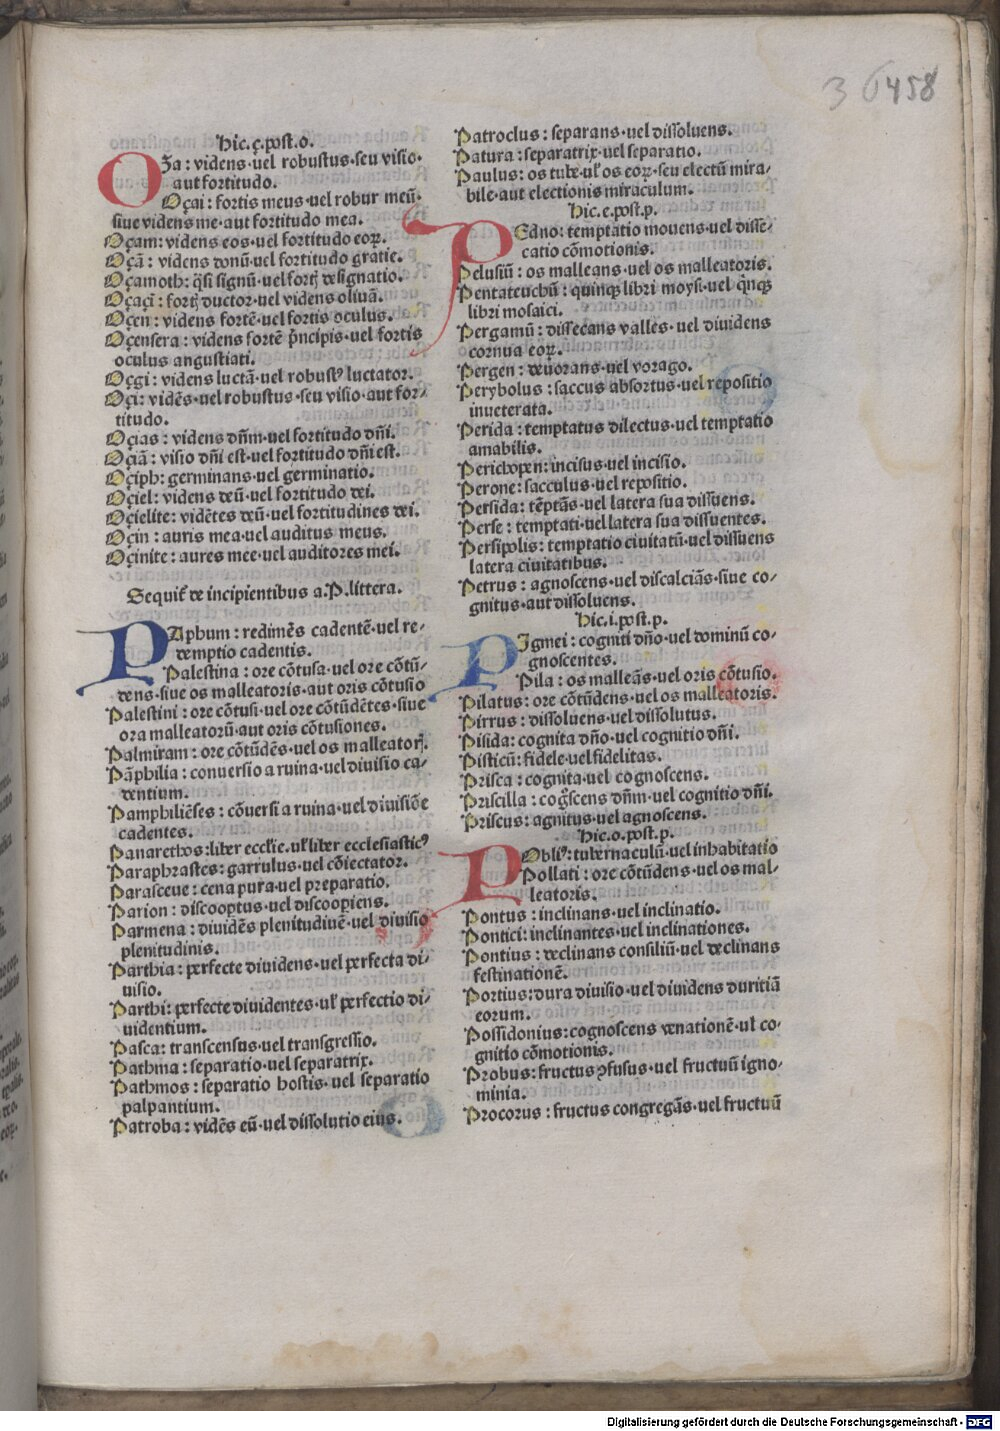 3 6458
Hic.ç.post.o.
OZa: videns·uel robustus·seu visio·
aut fortitudo.
Oçai: fortis meus·uel robur meū·
siue videns me·aut fortitudo mea.
Oçam: videns eos·uel fortitudo eoꝝ.
Oçā: videns donū·uel fortitudo gratie.
Oçamoth: q̄si signū·uel fortꝭ designatio.
Oçaçi: fortꝭ ductor·uel videns oliuā.
Oçen: videns fortē·uel fortis oculus.
Oçensera: videns fortē p̄ncipis·uel fortis
oculus angustiati.
Oçgi: videns luctā·uel robustꝰ luctator.
Oçi: vidēs·uel robustus·seu visio·aut for⸗
titudo.
Oçias: videns dn̄m·uel fortitudo dn̄i.
Oçiā: visio dn̄i est·uel fortitudo dn̄i est.
Oçiph: germinans·uel germinatio.
Oçiel: videns deū·uel fortitudo dei.
Oçielite: vidētes deū·uel fortitudines dei.
Oçin: auris mea·uel auditus meus.
Oçinite: aures mee·uel auditores mei.
Sequit᷑ de incipientibus a.P.littera.
PAphum: redimēs cadentē·uel re⸗
demptio cadentis.
Palestina: ore cōtusa·uel ore cōtū⸗
dens·siue os malleatoris·aut oris cōtusio
Palestini: ore cōtusi·uel ore cōtūdētes·siue
ora malleatorū·aut oris cōtusiones.
Palmiram: ore cōtūdēs·uel os malleatorꝭ.
Pāphilia: conuersio a ruina·uel diuisio ca⸗
dentium.
Pamphiliēses: cōuersi a ruina·uel diuisiōe
cadentes.
Panarethos: liber eccl̄ie.ul̄ liber ecclesiasticꝰ
Paraphrastes: garrulus·uel cōiectator.
Parasceue: cena pura·uel preparatio.
Parion: discooptus·uel discoopiens.
Parmena: diuidēs plenitudinē·uel diuisio
plenitudinis.
Parthia: perfecte diuidens·uel perfecta di⸗
uisio.
Parthi: perfecte diuidentes·ul̄ perfectio di⸗
uidentium.
Pasca: transcensus·uel transgressio.
Pathma: separatio·uel separatrix.
Pathmos: separatio hostis·uel separatio
palpantium.
Patroba: vidēs eū·uel dissolutio eius.
Patroclus: separans·uel dissoluens.
Patura: separatrix·uel separatio.
Paulus: os tube·ul̄ os eoꝝ·seu electū mira⸗
bile·aut electionis miraculum.
Hic.e.post.p.
PEdno: temptatio mouens·uel disse⸗
catio cōmotionis.
Pelusiū: os malleans·uel os malleatoris.
Pentateuchū: quinqꝫ libri moysi·uel q̄nqꝫ
libri mosaici.
Pergamū: dissecans valles·uel diuidens
cornua eoꝝ.
Pergen: deuorans·uel vorago.
Perybolus: saccus absortus·uel repositio
inueterata.
Perida: temptatus dilectus·uel temptatio
amabilis.
Perichopen: incisus·uel incisio.
Perone: sacculus·uel repositio.
Persida: tēptās·uel latera sua dissuens.
Perse: temptati·uel latera sua dissuentes.
Persipolis: temptatio ciuitatū·uel dissuens
latera ciuitatibus.
Petrus: agnoscens·uel discalciās·siue co⸗
gnitus·aut dissoluens.
Hic.i.post.p.
PIgmei: cogniti dn̄o·uel dominū co⸗
gnoscentes.
Pila: os malleās·uel oris cōtusio.
Pilatus: ore cōtūdens·uel os malleatoris.
Pirrus: dissoluens·uel dissolutus.
Pisida: cognita dn̄o·uel cognitio dn̄i.
Pisticū: fidele·uel fidelitas.
Prisca: cognita·uel cognoscens.
Priscilla: cog̊scens dn̄m·uel cognitio dn̄i.
Priscus: agnitus·uel agnoscens.
Hic.o.post.p.
POblꝰ: tabernaculū·uel inhabitatio
Pollati: ore cōtūdens·uel os mal⸗
leatoris.
Pontus: inclinans·uel inclinatio.
Pontici: inclinantes·uel inclinationes.
Pontius: declinans consiliū·uel declinans
festinationē.
Portius: dura diuisio·uel diuidens duritiā
eorum.
Possidonius: cognoscens venationē·ul̄ co⸗
gnitio cōmotionis.
Probus: fructus ꝯfusus·uel fructuū igno⸗
minia.
Procorus: fructus congregās·uel fructuū
Digitalisierung gefördert durch die Deutsche Forschungsgemeinschaft - DFG